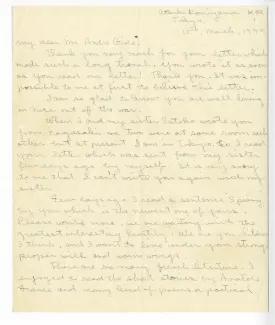 Tokyo,
10th March, 1947
my dear Mr. André Gide,
Thank you very much for your letter which
made such a long travel. You wrote it as soon
as you read my letter! Thank you. It was im-
possible to me at first to believe this letter.
I am so glad to know you are well living
in near out of the war.
When I and my sister wrote you
from Nagasaki we two were at some room with
other but at present I am in Tokyo. So I read
your letter which was sent from my sister
days ago by myself. It is very sorry
to me that I can't write you again with my
sister.
Few days ago I read a sentence
by you which is the newest one of yours.
Please write more, we are waiting with the
greatest interest. We are your
I think, and I want to live under your strong
proper will and warm wings.
There are so many french literature. I
enjoyed to read the short stories by Anatole
France and many kind of poems